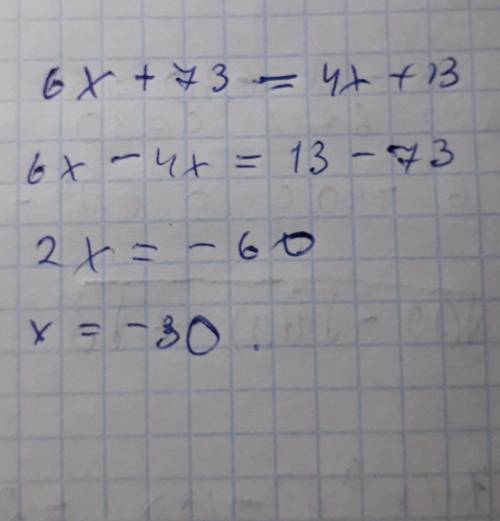 6x + 73 = 4x + 13
6x - 4x = 13 - 73
2x = - 60
x = - 30.